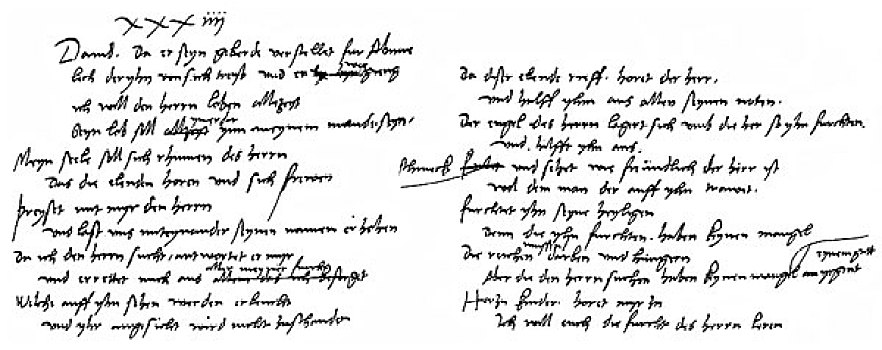 XXX iiij
Dauid. da er seyn geberde verstellet fur Abime
lech der yhn von sich treyb vnd er weg gieng
ich will den herrn loben alletzeyt
Seyn lob soll ymer ynn meynem munde seyn.
Meyn seele soll sich rhumen des herrn
Das die elenden horen vnd sich frewen
Preyset mit myr den herrn
vnd last vns miteynander seynen namen erhohen
Da ich den herrn sucht, antwortet er myr
vnd errettet mich aus aller meyner furcht
Wilche auff yhn sehen werden erleucht
vnd yhr angesicht wird nicht zuschanden
Da diser elende rieff. horet der herr,
vnd halff yhm aus allen seynen noten.
Der engel des herrn legert sich vmb die her so yhn furchten.
vnd hilfft yhn aus.
Schmeckt vnd sehet wie freundlich der herr ist
wol dem man der auff yhn trawet.
furchtet yhn seyne heyligen
denn die yhn furchten. haben keynen mangel
Die reichen mussen darben vnd hungern
Aber die den herrn suchen haben keynen mangel an eynem gutt
Her zu kinder. horet myr zu
Ich will euch die furcht des herrn leren